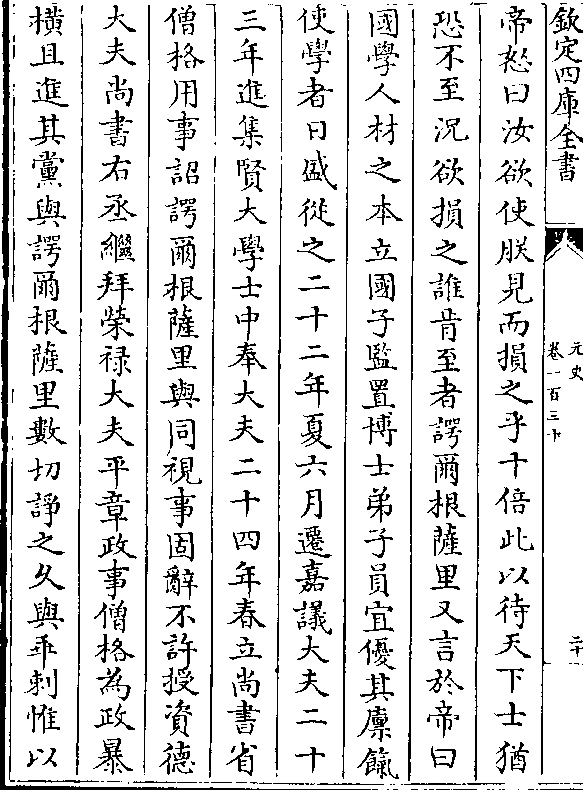 欽定四庫全書
元史
卷一百三十
二十
帝怒曰汝欲使朕見而損之乎十倍此以待天下士猶
恐不至況欲損之誰肯至者諤爾根薩里又言於帝曰
國學人材之本立國子監置博士弟子員宜優其廩餼
使學者日盛從之二十二年夏六月遷嘉議大夫二十
三年進集賢大學士中奉大夫二十四年春立尚書省
僧格用事詔諤爾根薩里與同視事固辭不許授資德
大夫尚書右丞繼拜榮祿大夫平章政事僧格為政暴
橫且進其黨與諤爾根薩里數切諍之久與乖剌惟以